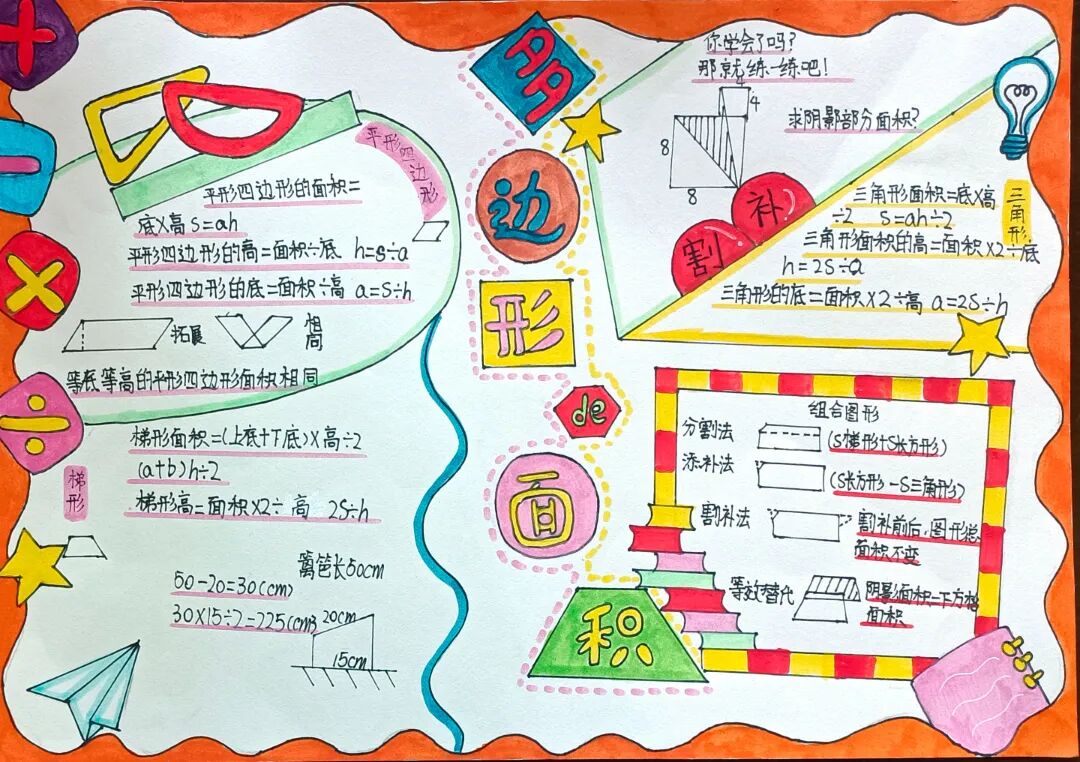 多边形de面积
平行四边形
平行四边形的面积=
底×高 S=ah
平行四边形的高=面积÷底 h=s÷a
平行四边形的底=面积÷高 a=S÷h
拓展
等底等高的平行四边形面积相同
梯形
梯形面积=(上底+下底)×高÷2
(a+b)h÷2
梯形高=面积×2÷高 2S÷h
篱笆长50cm
50-20=30(cm)
30×15÷2=225(cm²)
20cm
15cm
你学会了吗?
那就练一练吧!
4
4
求阴影部分面积?
8
8
割补
三角形
三角形面积=底×高
÷2 S=ah÷2
三角形面积的高=面积×2÷底
h=2S÷a
三角形的底=面积×2÷高 a=2S÷h
组合图形
分割法 (S梯形+S长方形)
添补法 (S长方形-S三角形)
割补法 割补前后,图形总
面积不变
等效替代 阴影面积=下方梯
面积